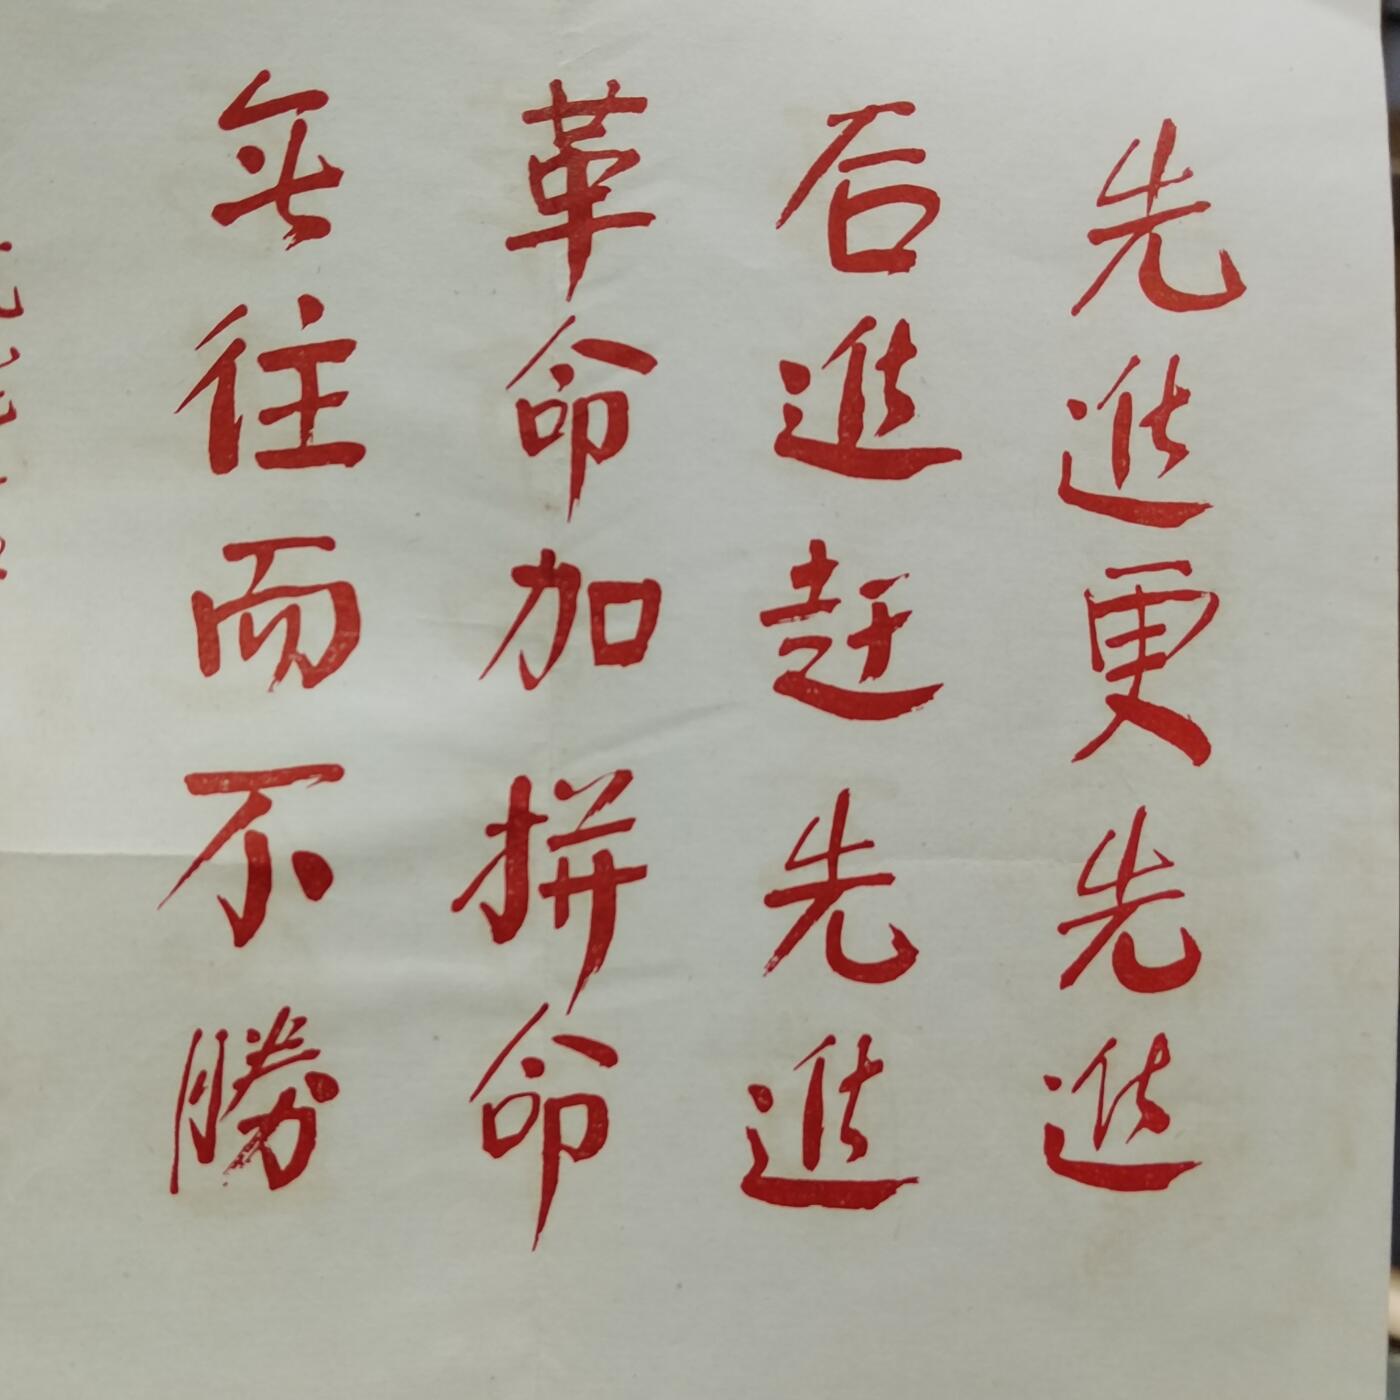 先進更先進
后進趕先進
革命加拼命
無往而不勝